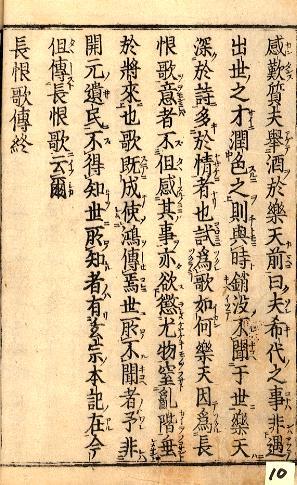 感歎質夫舉酒於樂天前曰夫希代之事非遇
出世之才潤色之則與時銷没不聞于世樂天
深於詩多於情者也試爲歌如何樂天因爲長
恨歌意者不但感其事亦欲懲尤物窒亂階垂
於將來也歌既成使鴻傳焉世所不聞者予非
開元遺民不得知世所知者有玄宗本記在今
但傳長恨歌云爾
長恨歌傳終
10